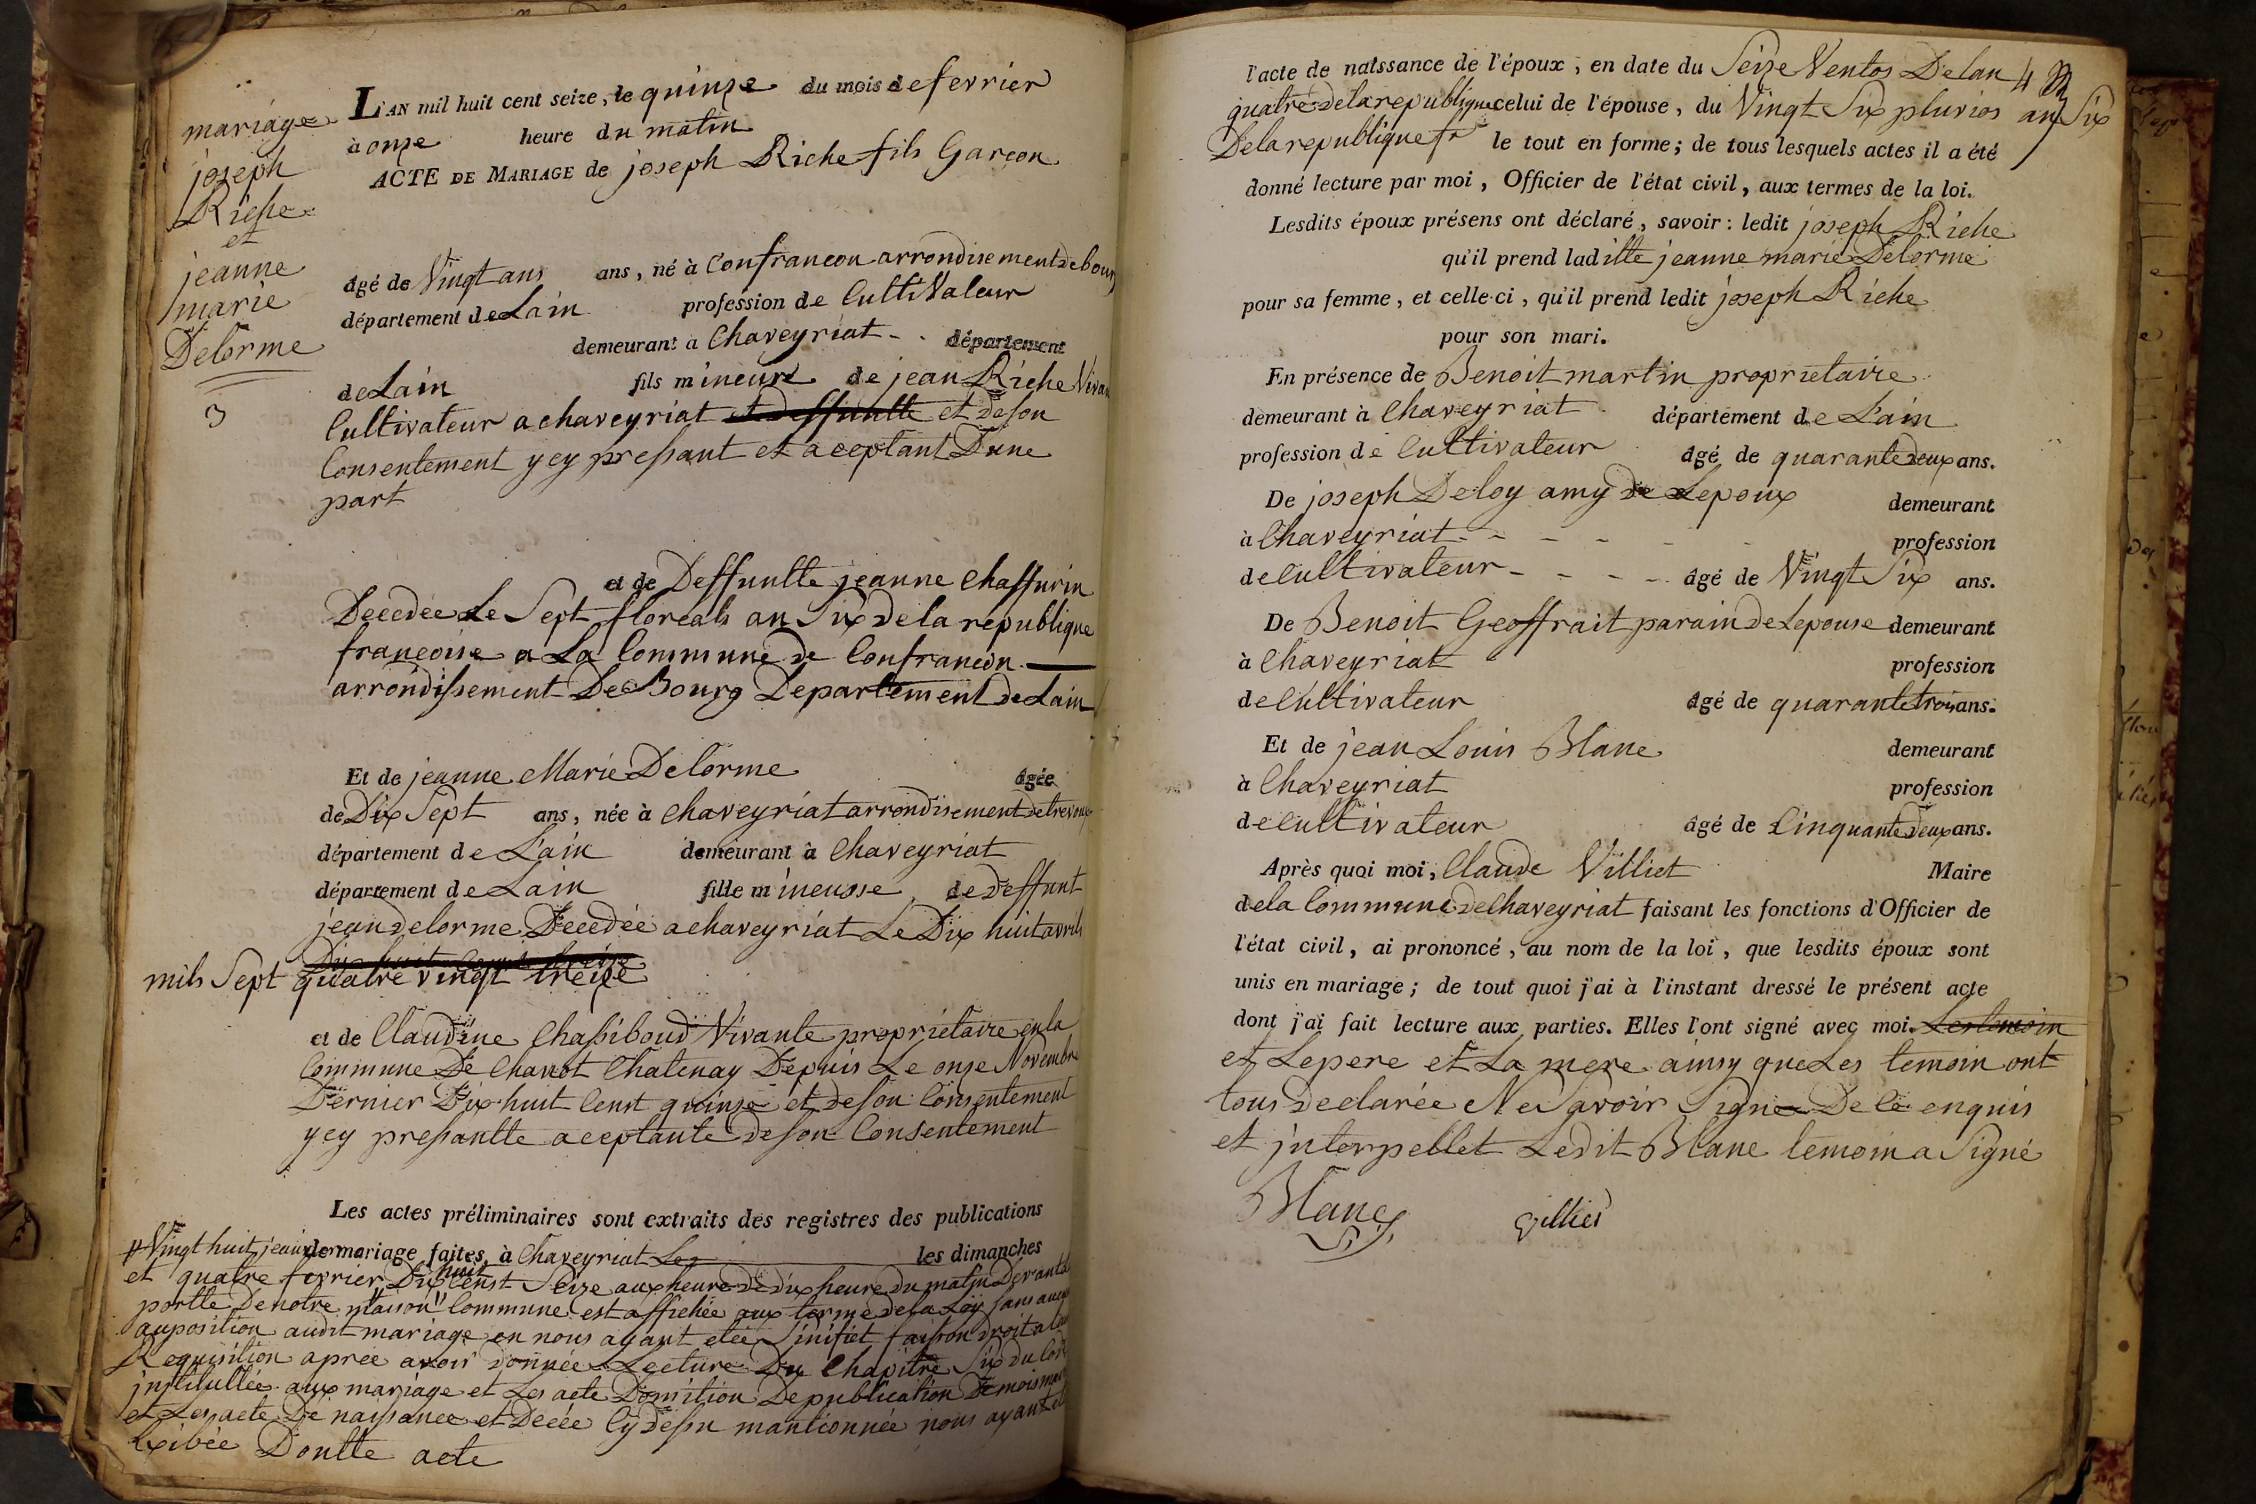 mariage
joseph
Riche
et
jeanne
marie
Delorme
3
L'AN mil huit cent seize, le quinze du mois de fevrier
à onze heure du matin
ACTE DE MARIAGE de joseph Riche fils Garçon
âgé de Vingt ans ans, né à Confrancon arrondisement de bourg
département de Lain profession de Cultivateur
demeurant à Chaveyriat département
de Lain fils mineure de jean Riche Vivan
Cultivateur a chaveyriat et deffuntte et de son
Consentement ycy pressant et aceptant Dune
part
et de Deffuntte jeanne Chaffurin
Decedée Le Sept floreals an Six de la republique
francoise a La Commune de Confrancon
arrondissement De Bourg Departement de Lain
Et de jeanne Marie Delorme âgée
de Dix Sept ans, née à Chaveyriat arrondisement de trevoux
département de L'ain demeurant à Chaveyriat
département de Lain fille mineusse de deffunt
jean delorme Decedée a chaveyriat Le Dix huit avrils
mils Sept quatre vingt treize
et de Claudine Chassiboud Vivante proprietaire en la
Commune De Chanot Chatenay Depuis Le onze Novembre
Dernier Dix huit Censt quinze et de son Consentement
ycy pressantte aceptante de son Consentement
Les actes préliminaires sont extraits des registres des publications
Vingt huit de mariage faites, à Chaveyriat Les les dimanches
et quatre fevrier Dix huit Censt Seize aux heure de dix heure du matin Devant la
portte De notre maison Commune est affichée aux terme de la Loy sans aucun
auposition audit mariage en nous ayant etée Sinifiet faison droit a leur
Requisition apree avoir donnée Lecture Du Chapitre Six du Code
instituttée aux mariage et Les acte De publication
et Les acte De naissance et Decée Cy dessu mantionnée nous ayant
Exibée Doutte acte
l'acte de naissance de l'époux, en date du Seize Ventos De lan 4
quatre de la republique celui de l'épouse, du Vingt Six pluvios an Six
De la republique fr le tout en forme; de tous lesquels actes il a été
donné lecture par moi, Officier de l'état civil, aux termes de la loi.
Lesdits époux présens ont déclaré, savoir: ledit joseph Riche
qu'il prend laditte jeanne marie Delorme
pour sa femme, et celle-ci, qu'il prend ledit joseph Riche
pour son mari.
En présence de Benoit martin proprietaire
demeurant à Chaveyriat département de L'ain
profession de Cultivateur âgé de quarante deux ans.
De joseph Deloy amy de Lepoux demeurant
à Chaveyriat profession
de Cultivateur âgé de Vingt Six ans.
De Benoit Geoffrait parain de Lepouse demeurant
à Chaveyriat profession
de Cultivateur âgé de quarante trois ans.
Et de jean Louis Blanc demeurant
à Chaveyriat profession
de Cultivateur âgé de Cinquante deux ans.
Après quoi moi, Claude Villiet Maire
de la Commune de Chaveyriat faisant les fonctions d'Officier de
l'état civil, ai prononcé, au nom de la loi, que lesdits époux sont
unis en mariage; de tout quoi j'ai à l'instant dressé le présent acte
dont j'ai fait lecture aux parties. Elles l'ont signé avec moi. Les temoin
et Le pere et La mere ainsy que Les temoin ont
tous declarée Ne Savoir Signe De ce enquis
et interpellet Ledit Blanc temoin a Signé
Blanc
villiet